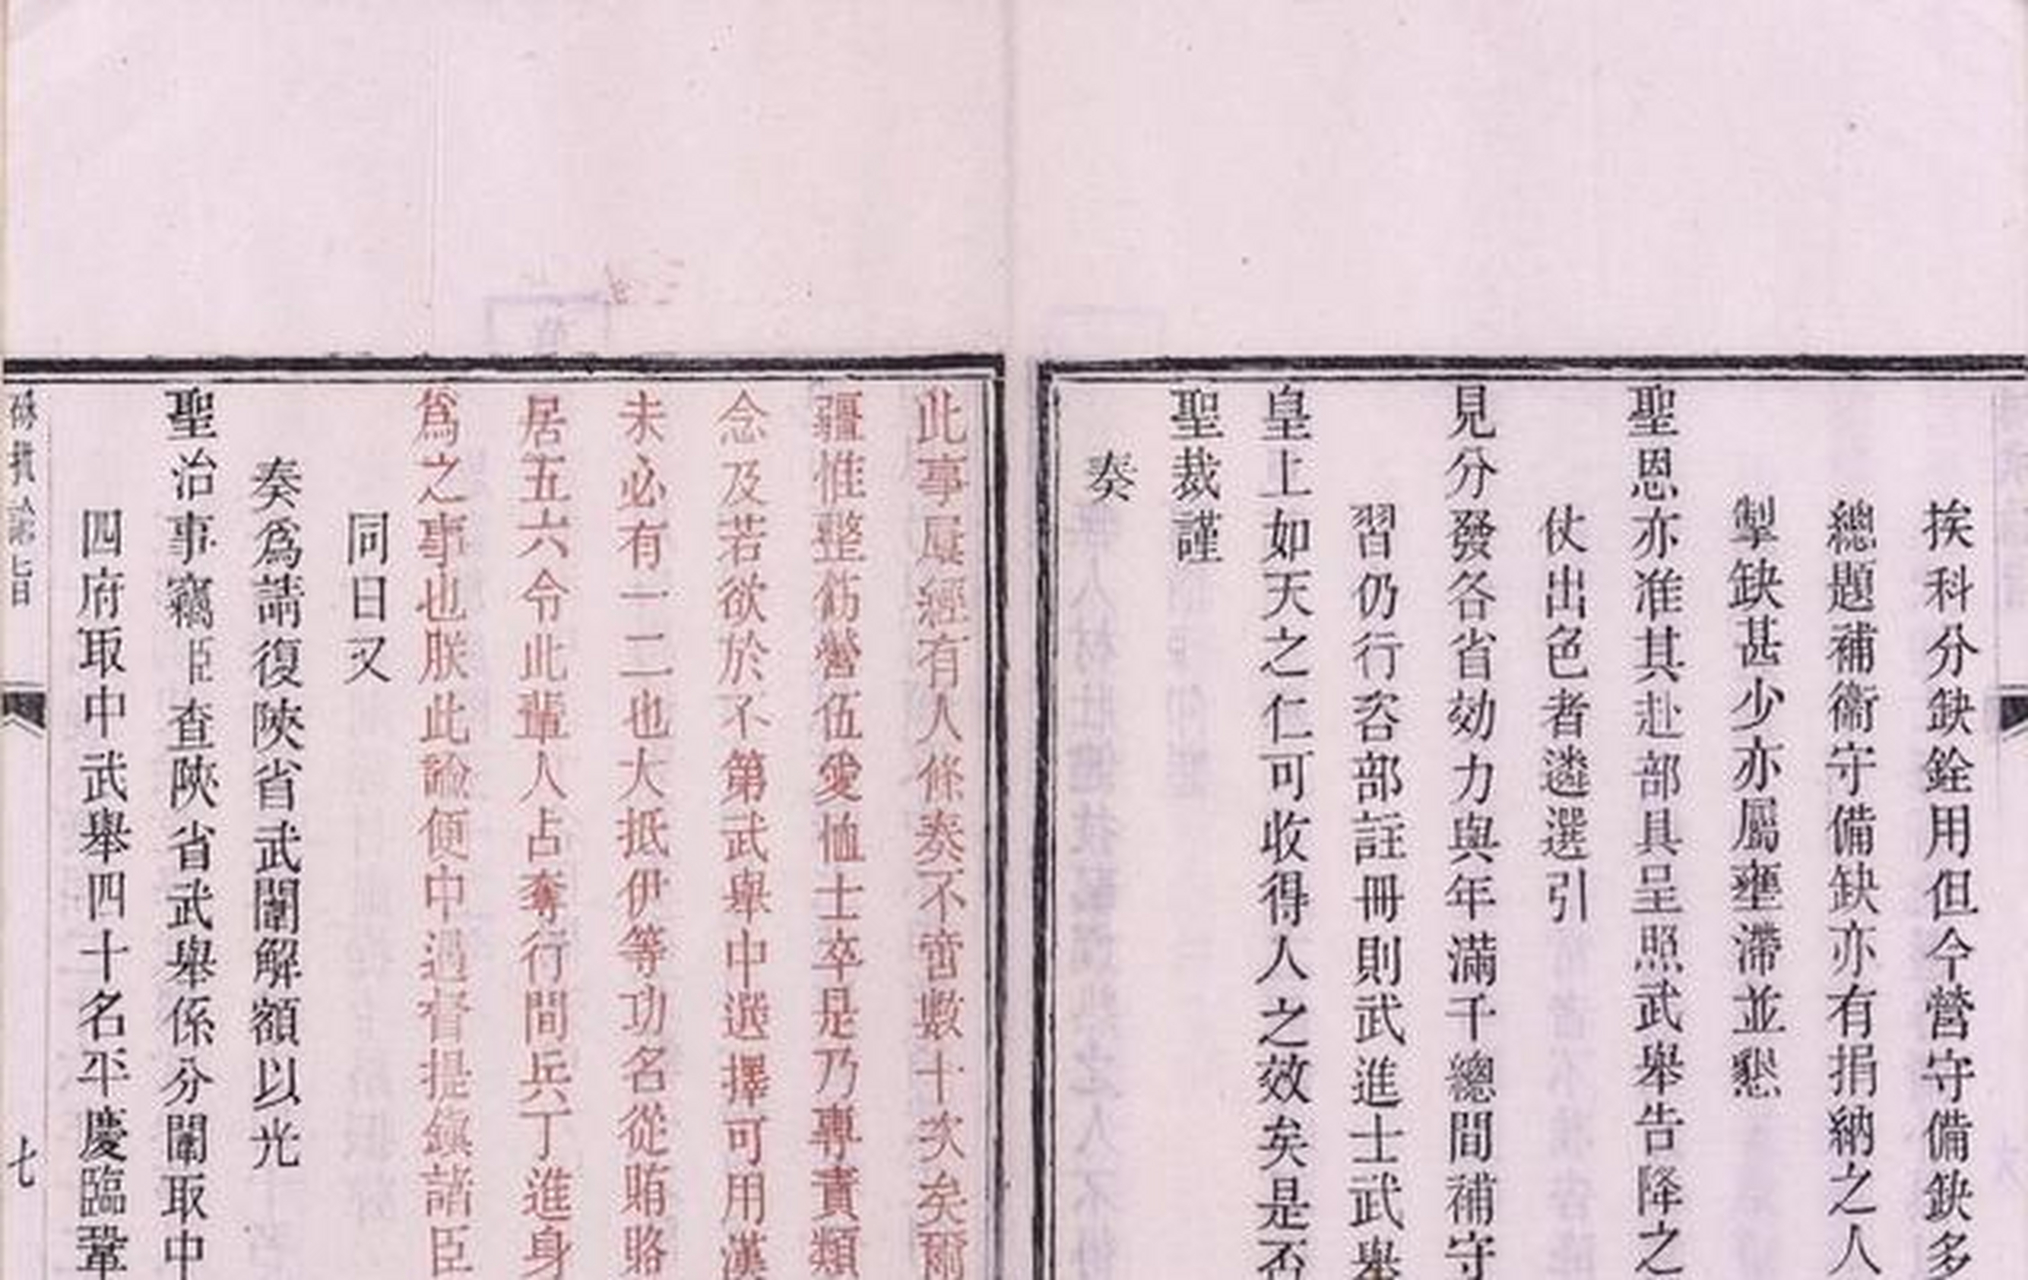 挨科分缺銓用但今營守備缺多
總題補衞守備缺亦有捐納之人
掣缺甚少亦屬壅滯並懇
聖恩亦准其赴部具呈照武舉告降之
仗出色者遴選引
見分發各省効力與年滿千總間補守
習仍行咨部註冊則武進士武舉
皇上如天之仁可收得人之效矣是否
聖裁謹
奏
此事屢經有人條奏不啻數十次矣爾
疆惟整飭營伍愛恤士卒是乃專責類
念及若欲於不第武舉中選擇可用漢
未必有一二也大抵伊等功名從賄賂
居五六令此輩人占奪行間兵丁進身
爲之事也朕此諭便中過督提鎮諸臣
同日又
奏爲請復陝省武闈解額以光
聖治事竊臣查陝省武舉係分闈取中
四府取中武舉四十名平慶臨鞏
硃批諭旨
七